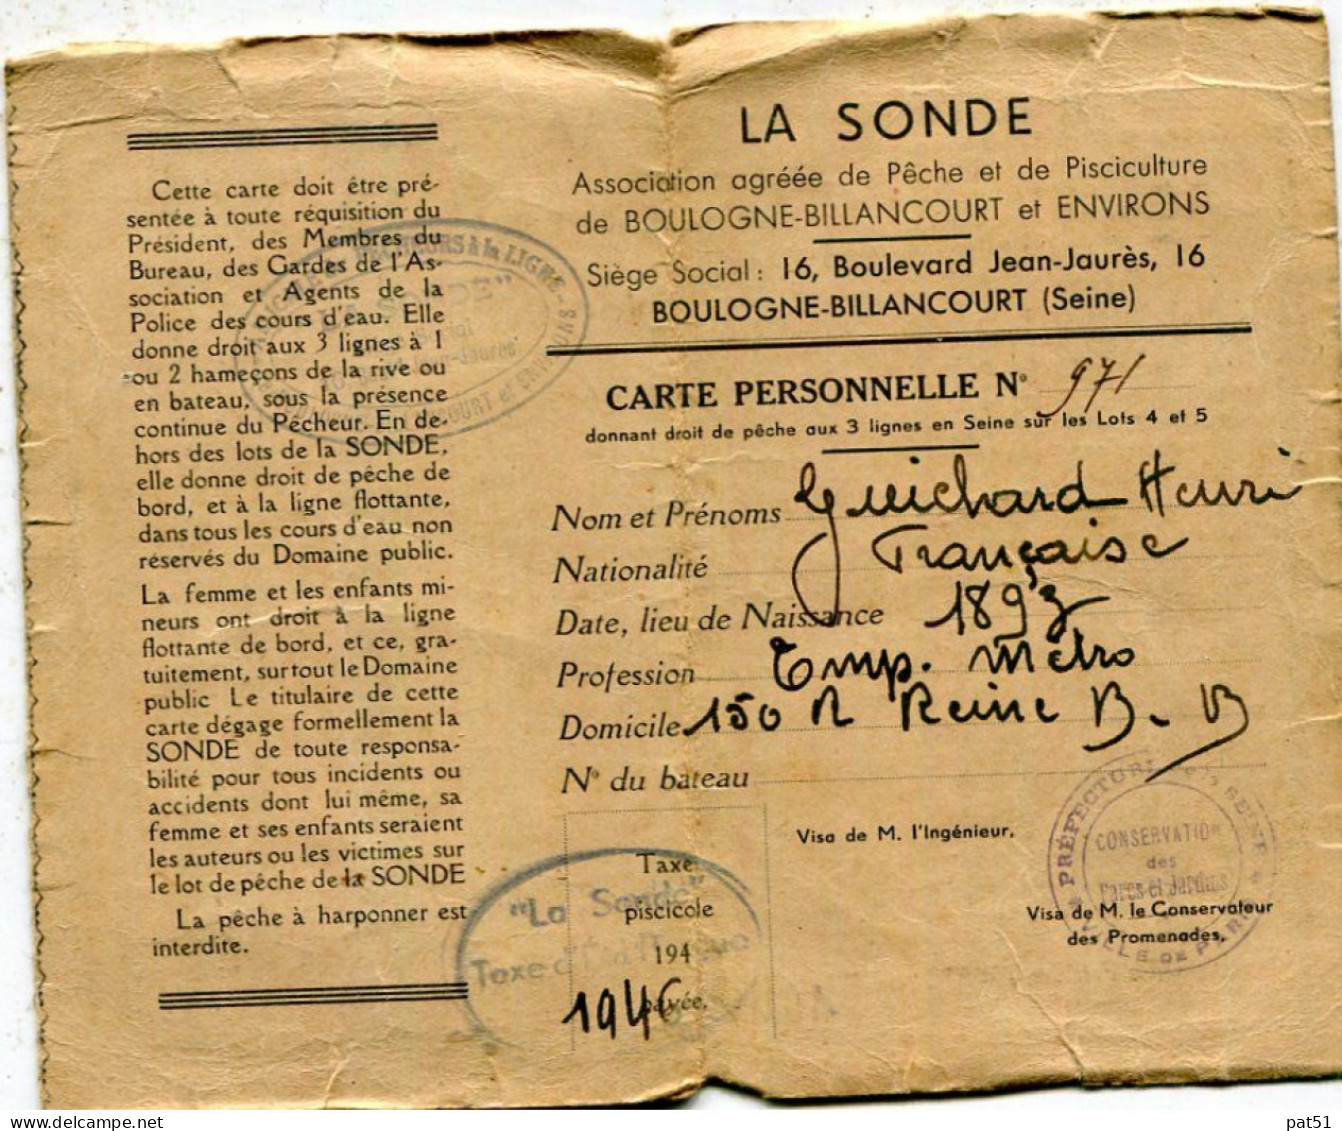 Cette carte doit être pré-
sentée à toute réquisition du
Président, des Membres du
Bureau, des Gardes de l'As-
sociation et Agents de la
Police des cours d'eau. Elle
donne droit aux 3 lignes à 1
ou 2 hameçons de la rive ou
en bateau, sous la présence
continue du Pécheur. En de-
hors des lots de la SONDE,
elle donne droit de pêche de
bord, et à la ligne flottante,
dans tous les cours d'eau non
réservés du Domaine public.
La femme et les enfants mi-
neurs ont droit à la ligne
flottante de bord, et ce, gra-
tuitement, surtout le Domaine
public Le titulaire de cette
carte dégage formellement la
SONDE de toute responsa-
bilité pour tous incidents ou
accidents dont lui même, sa
femme et ses enfants seraient
les auteurs ou les victimes sur
le lot de pêche de la SONDE
La pêche à harponner est
interdite.
LA SONDE
Association agréée de Pêche et de Pisciculture
de BOULOGNE-BILLANCOURT et ENVIRONS
Siège Social : 16, Boulevard Jean-Jaurès, 16
BOULOGNE-BILLANCOURT (Seine)
CARTE PERSONNELLE N° 971
donnant droit de pêche aux 3 lignes en Seine sur les Lots 4 et 5
Nom et Prénoms Guichard Henri
Nationalité Française
Date, lieu de Naissance 1893
Profession Emp. Métro
Domicile 150 R Reine B. B
N° du bateau
Visa de M. l'Ingénieur.
Taxe
piscicole
194
payée.
1946
"La Sonde"
Taxe
PRÉFECTURE SEINE
CONSERVATION
des
Parcs et Jardins
VILLE DE PARIS
Visa de M. le Conservateur
des Promenades,
à la LIGNE
et ENVIRONS
pat51